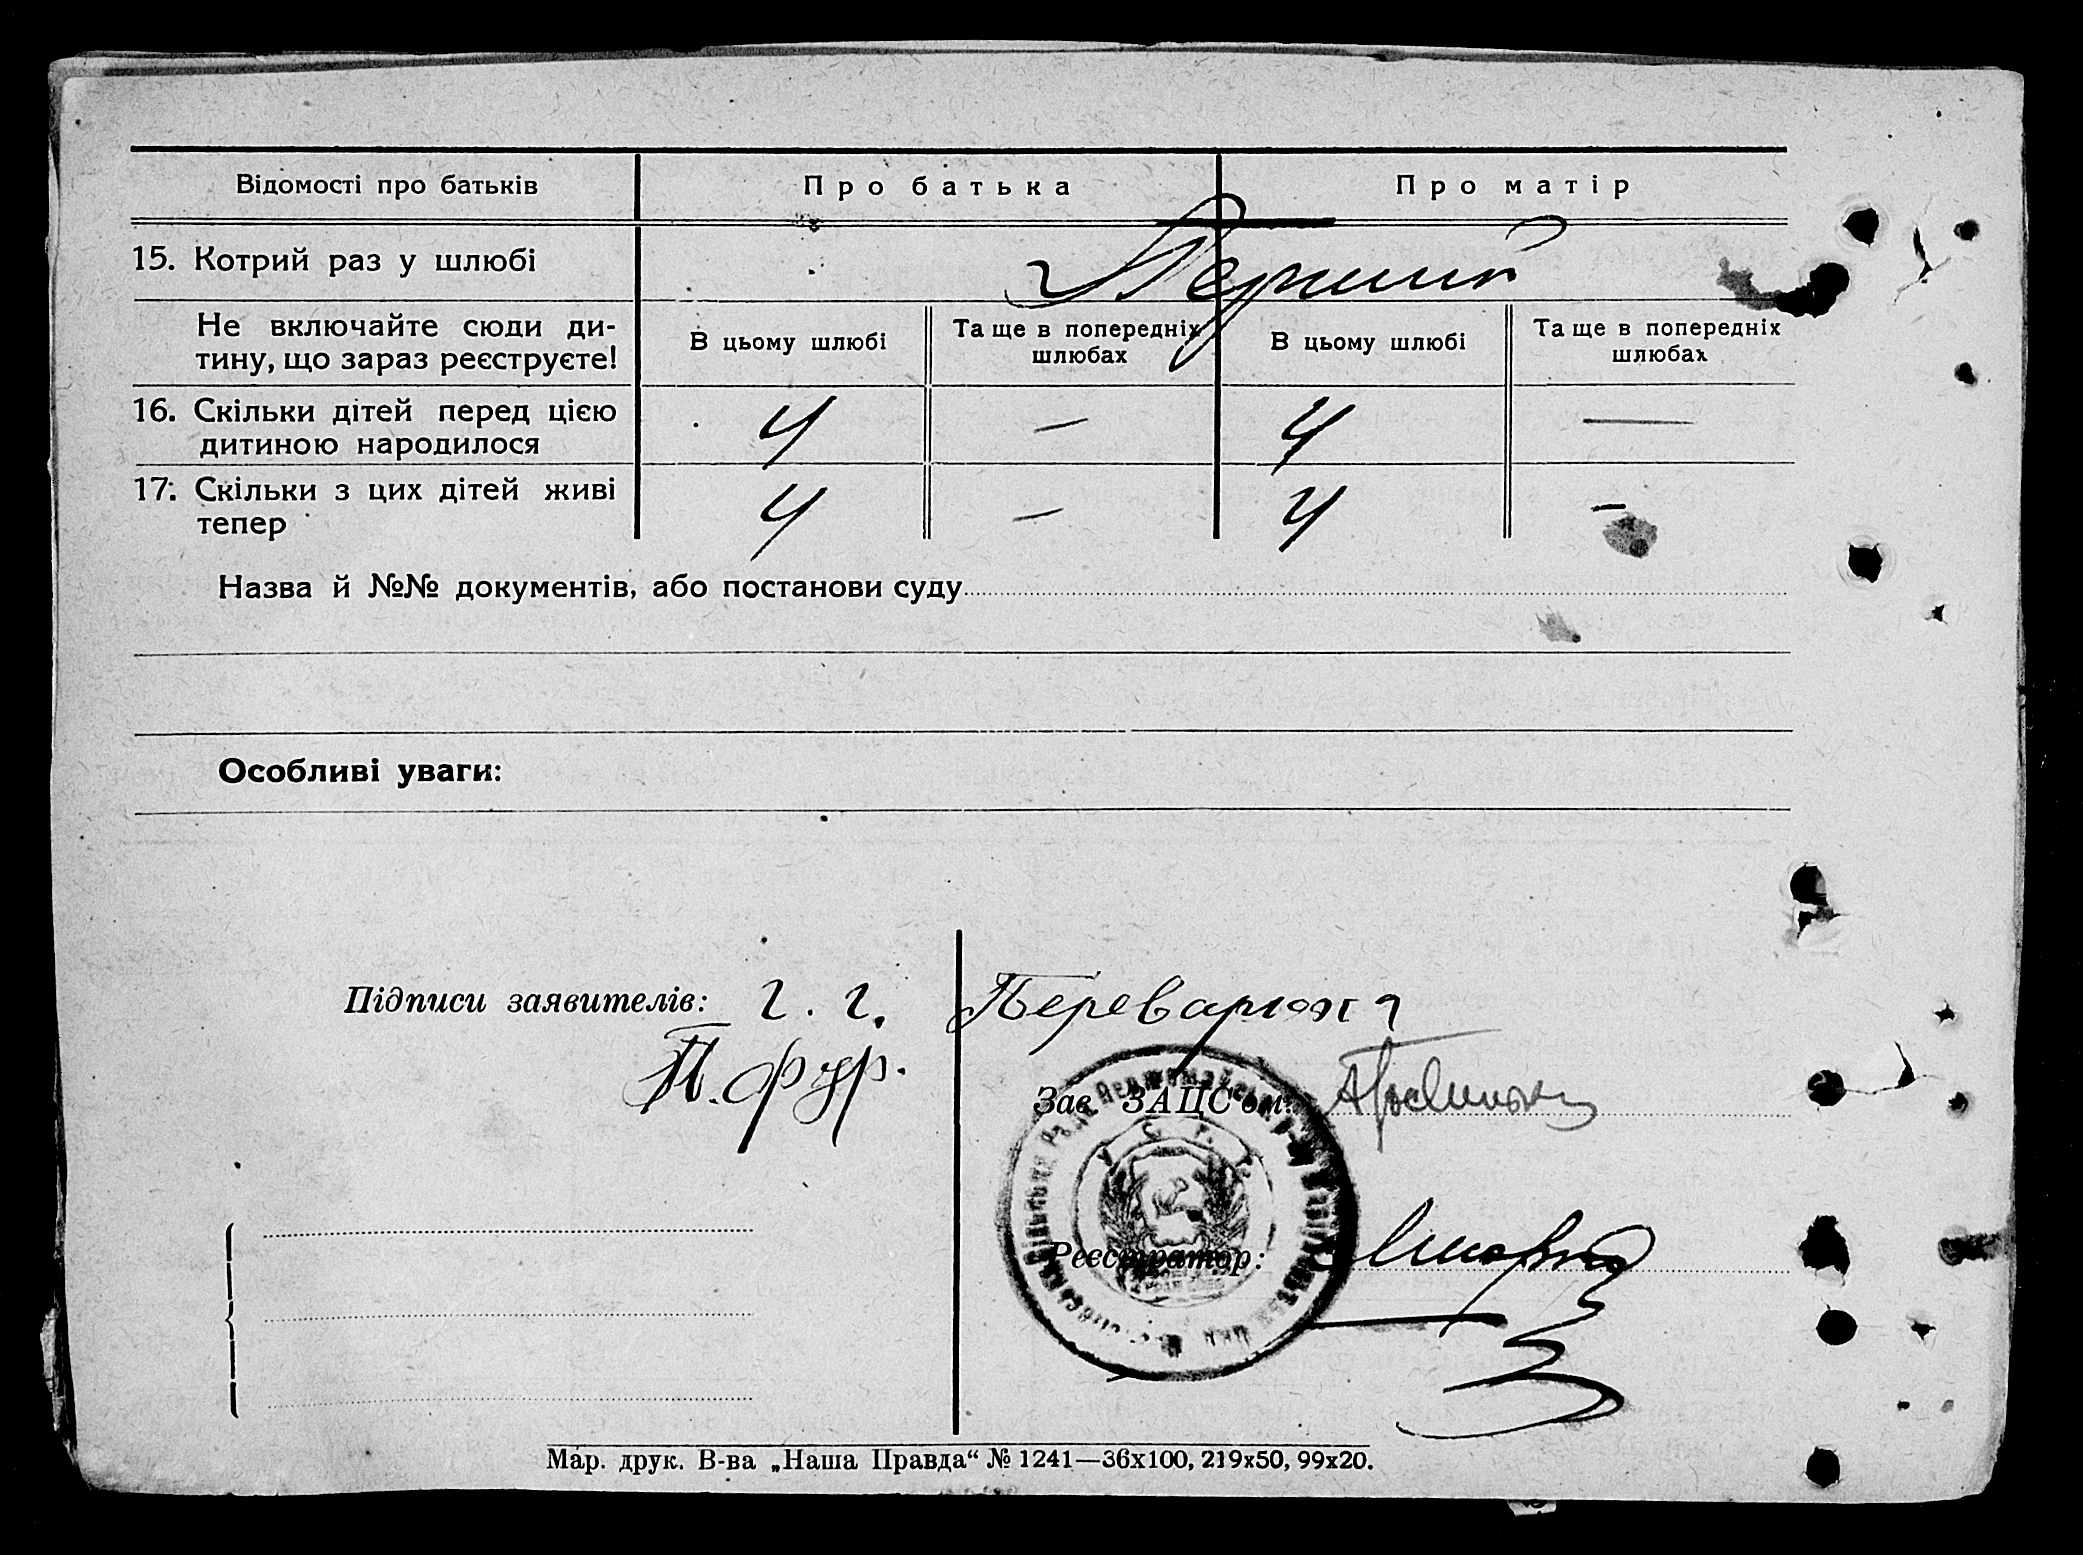 Відомості про батьків
Про батька
Про матір
15. Котрий раз у шлюбі
Перший
Не включайте сюди ди-
тину, що зараз реєструєте!
В цьому шлюбі
Та ще в попередніх
шлюбах
В цьому шлюбі
Та ще в попередніх
шлюбах
16. Скільки дітей перед цією
дитиною народилося
4 — 4 —
17. Скільки з цих дітей живі
тепер
4 — 4 —
Назва й №№ документів, або постанови суду
Особливі уваги:
Підписи заявителів: г. г.
Зав. ЗАЦС'ом:
У. С. Р. Р.
Реєстратор:
Мар. друк. В-ва „Наша Правда“ № 1241—36х100, 219х50, 99х20.